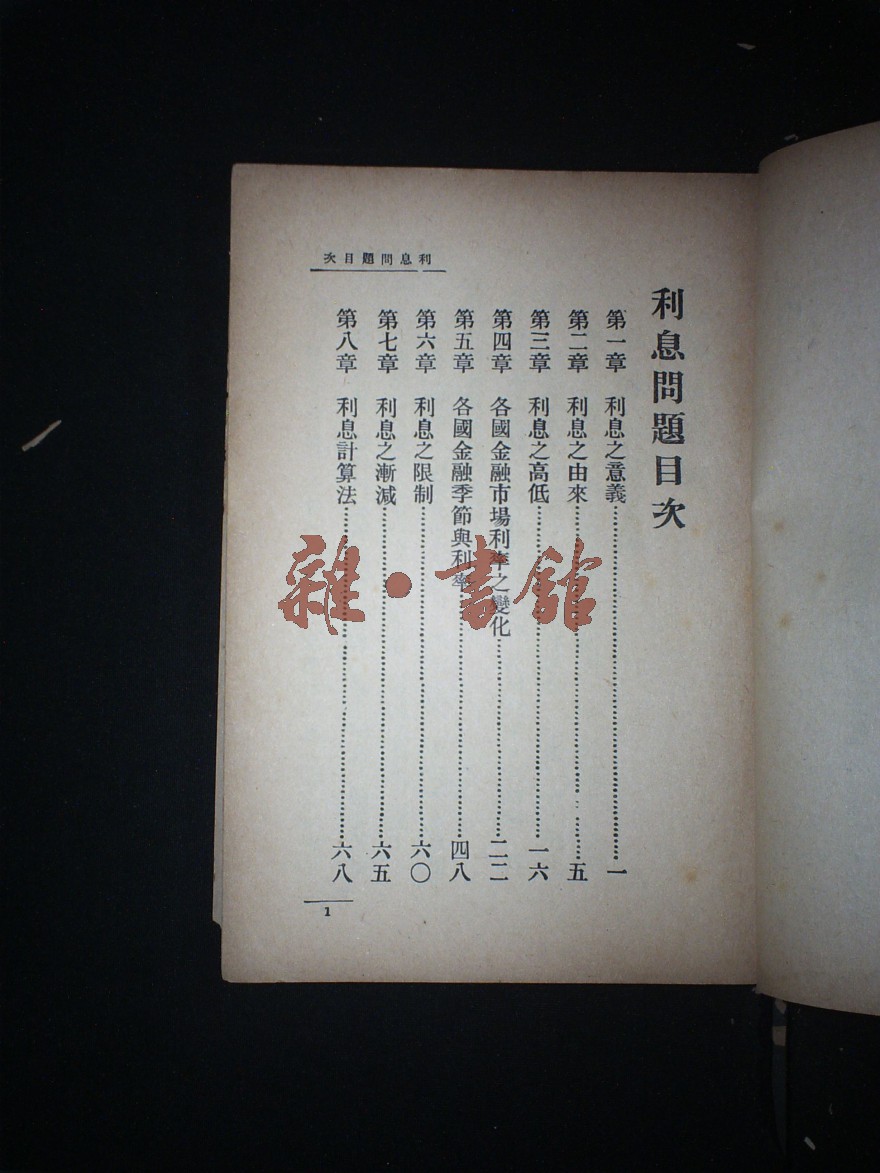 利息問題目次
利息問題目次
第一章　利息之意義……一
第二章　利息之由來……五
第三章　利息之高低……一六
第四章　各國金融市場利率之變化……二二
第五章　各國金融季節與利率……四八
第六章　利息之限制……六〇
第七章　利息之漸減……六五
第八章　利息計算法……六八
1
雜·書館